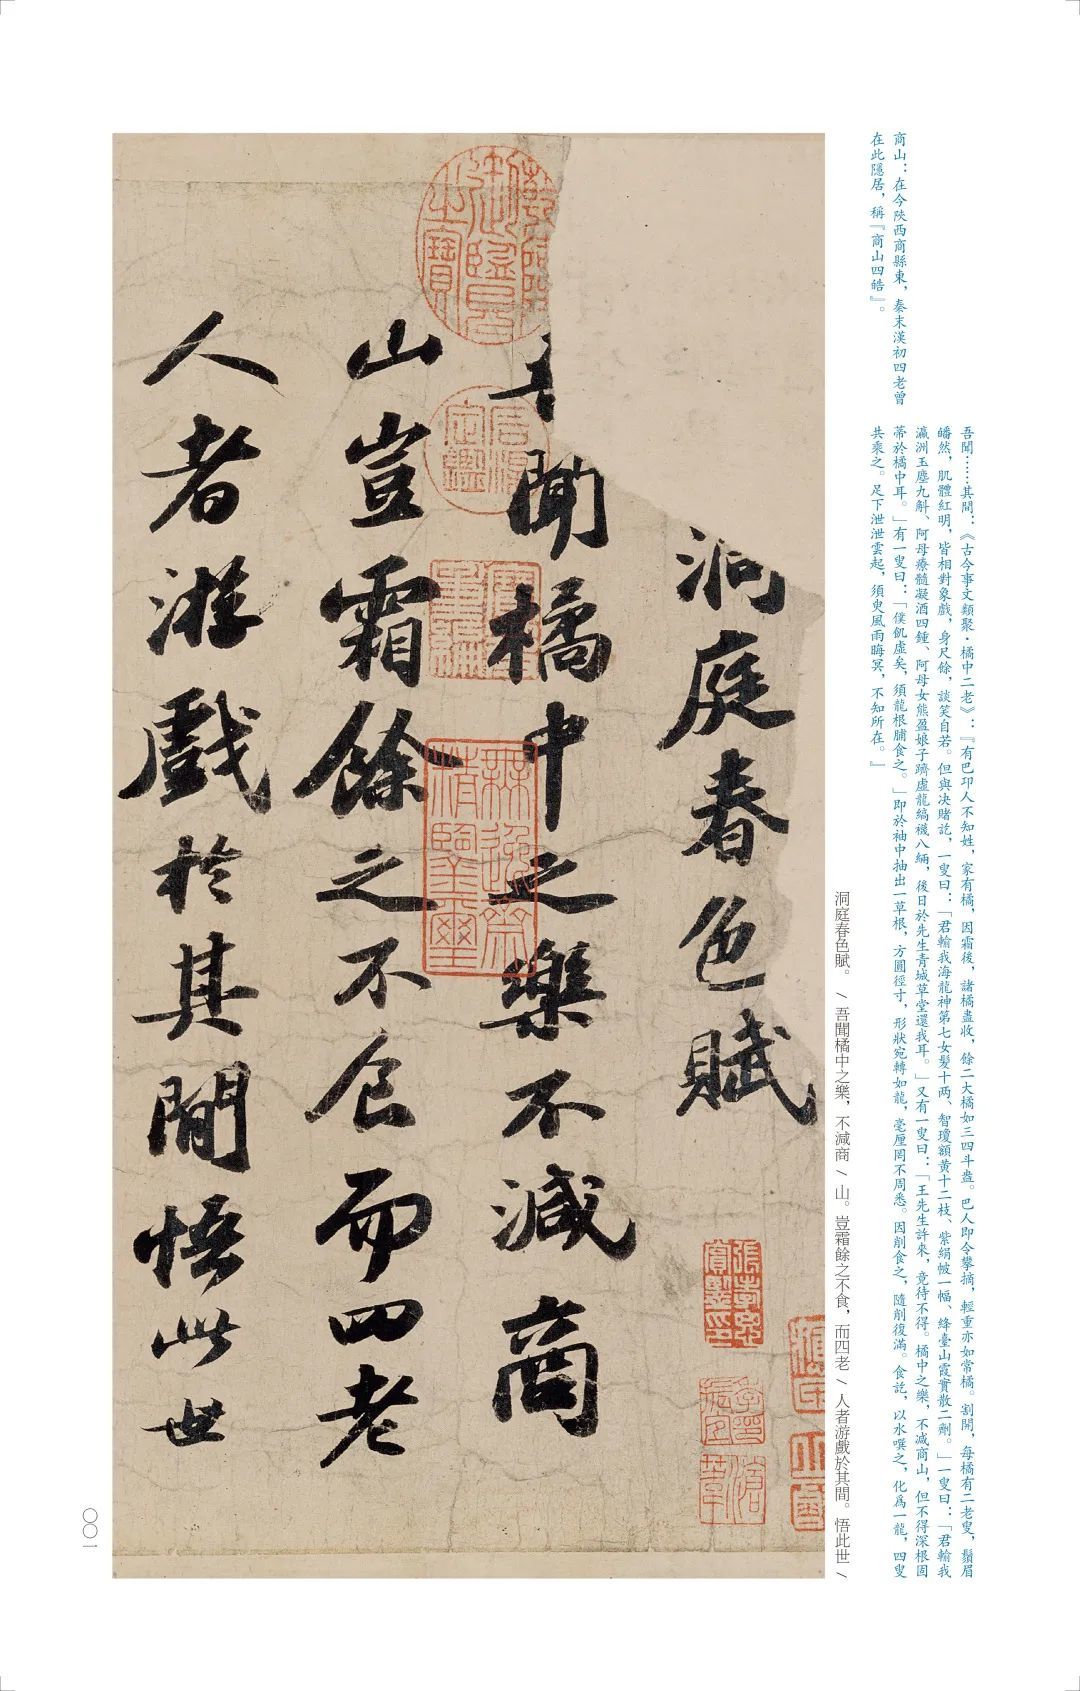 商山：在今陝西商縣東，秦末漢初四老曾
在此隱居，稱『商山四皓』。
吾聞……其間：《古今事文類聚·橘中二老》：『有巴邛人不知姓，家有橘，因霜後，諸橘盡收，餘二大橘如三四斗盎。巴人即令攀摘，輕重亦如常橘。割開，每橘有二老叟，鬚眉
皤然，肌體紅明，皆相對象戲，身尺餘，談笑自若。但與决賭訖，一叟曰：「君輸我海龍神第七女髮十两、智瓊額黄十二枝、紫絹帔一幅、絳臺山霞實散二劑。」一叟曰：「君輸我
瀛洲玉塵九斛、阿母療髓凝酒四鍾、阿母女熊盈娘子躋虚龍縞襪八緉，後日於先生青城草堂還我耳。」又有一叟曰：「王先生許來，竟待不得。橘中之樂，不减商山，但不得深根固
蒂於橘中耳。」有一叟曰：「僕飢虚矣，須龍根脯食之。」即於袖中抽出一草根，方圓徑寸，形狀宛轉如龍，毫厘罔不周悉。因削食之，隨削復滿。食訖，以水噀之，化爲一龍，四叟
共乘之。足下泄泄雲起，須臾風雨晦冥，不知所在。』
洞庭春色賦。/吾聞橘中之樂，不減商/山。豈霜餘之不食，而四老/人者游戲於其間。悟此世/
洞庭春色賦
聞橘中之樂不減商
山豈霜餘之不食而四老
人者游戲於其間悟此世
〇〇一